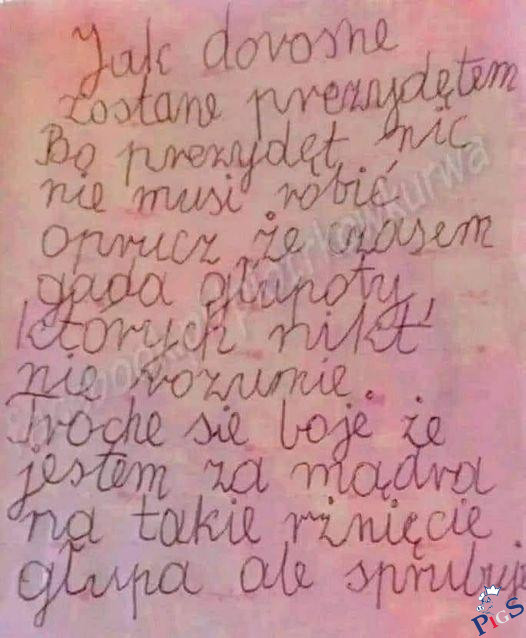 Jak dorosne
zostane prezydętem
Bo prezydęt nic
nie musi robić
oprucz że czasem
gada głupoty
których nikt
nie rozumie.
Troche sie boje że
jestem za mądra
na takie rżnięcie
głupa ale sprubuje
PIGS